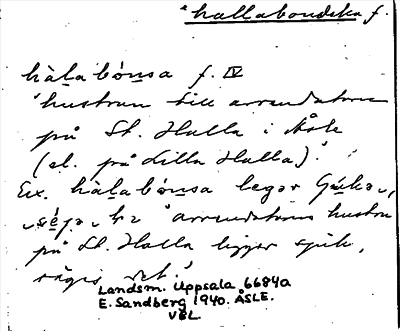 *hallabondska f.
hàḷa bónsa f. IV
"hustrun till arrendatorn
på St. Halla i Åsle
(el. på Lilla Halla)".
Ex. hàḷabónsa legər
"arrendatorns hustru
på St. Halla ligger sjuk,
sägis det."
Landsm. Uppsala 6684a
E. Sandberg 1940. ÅSLE.
VGL